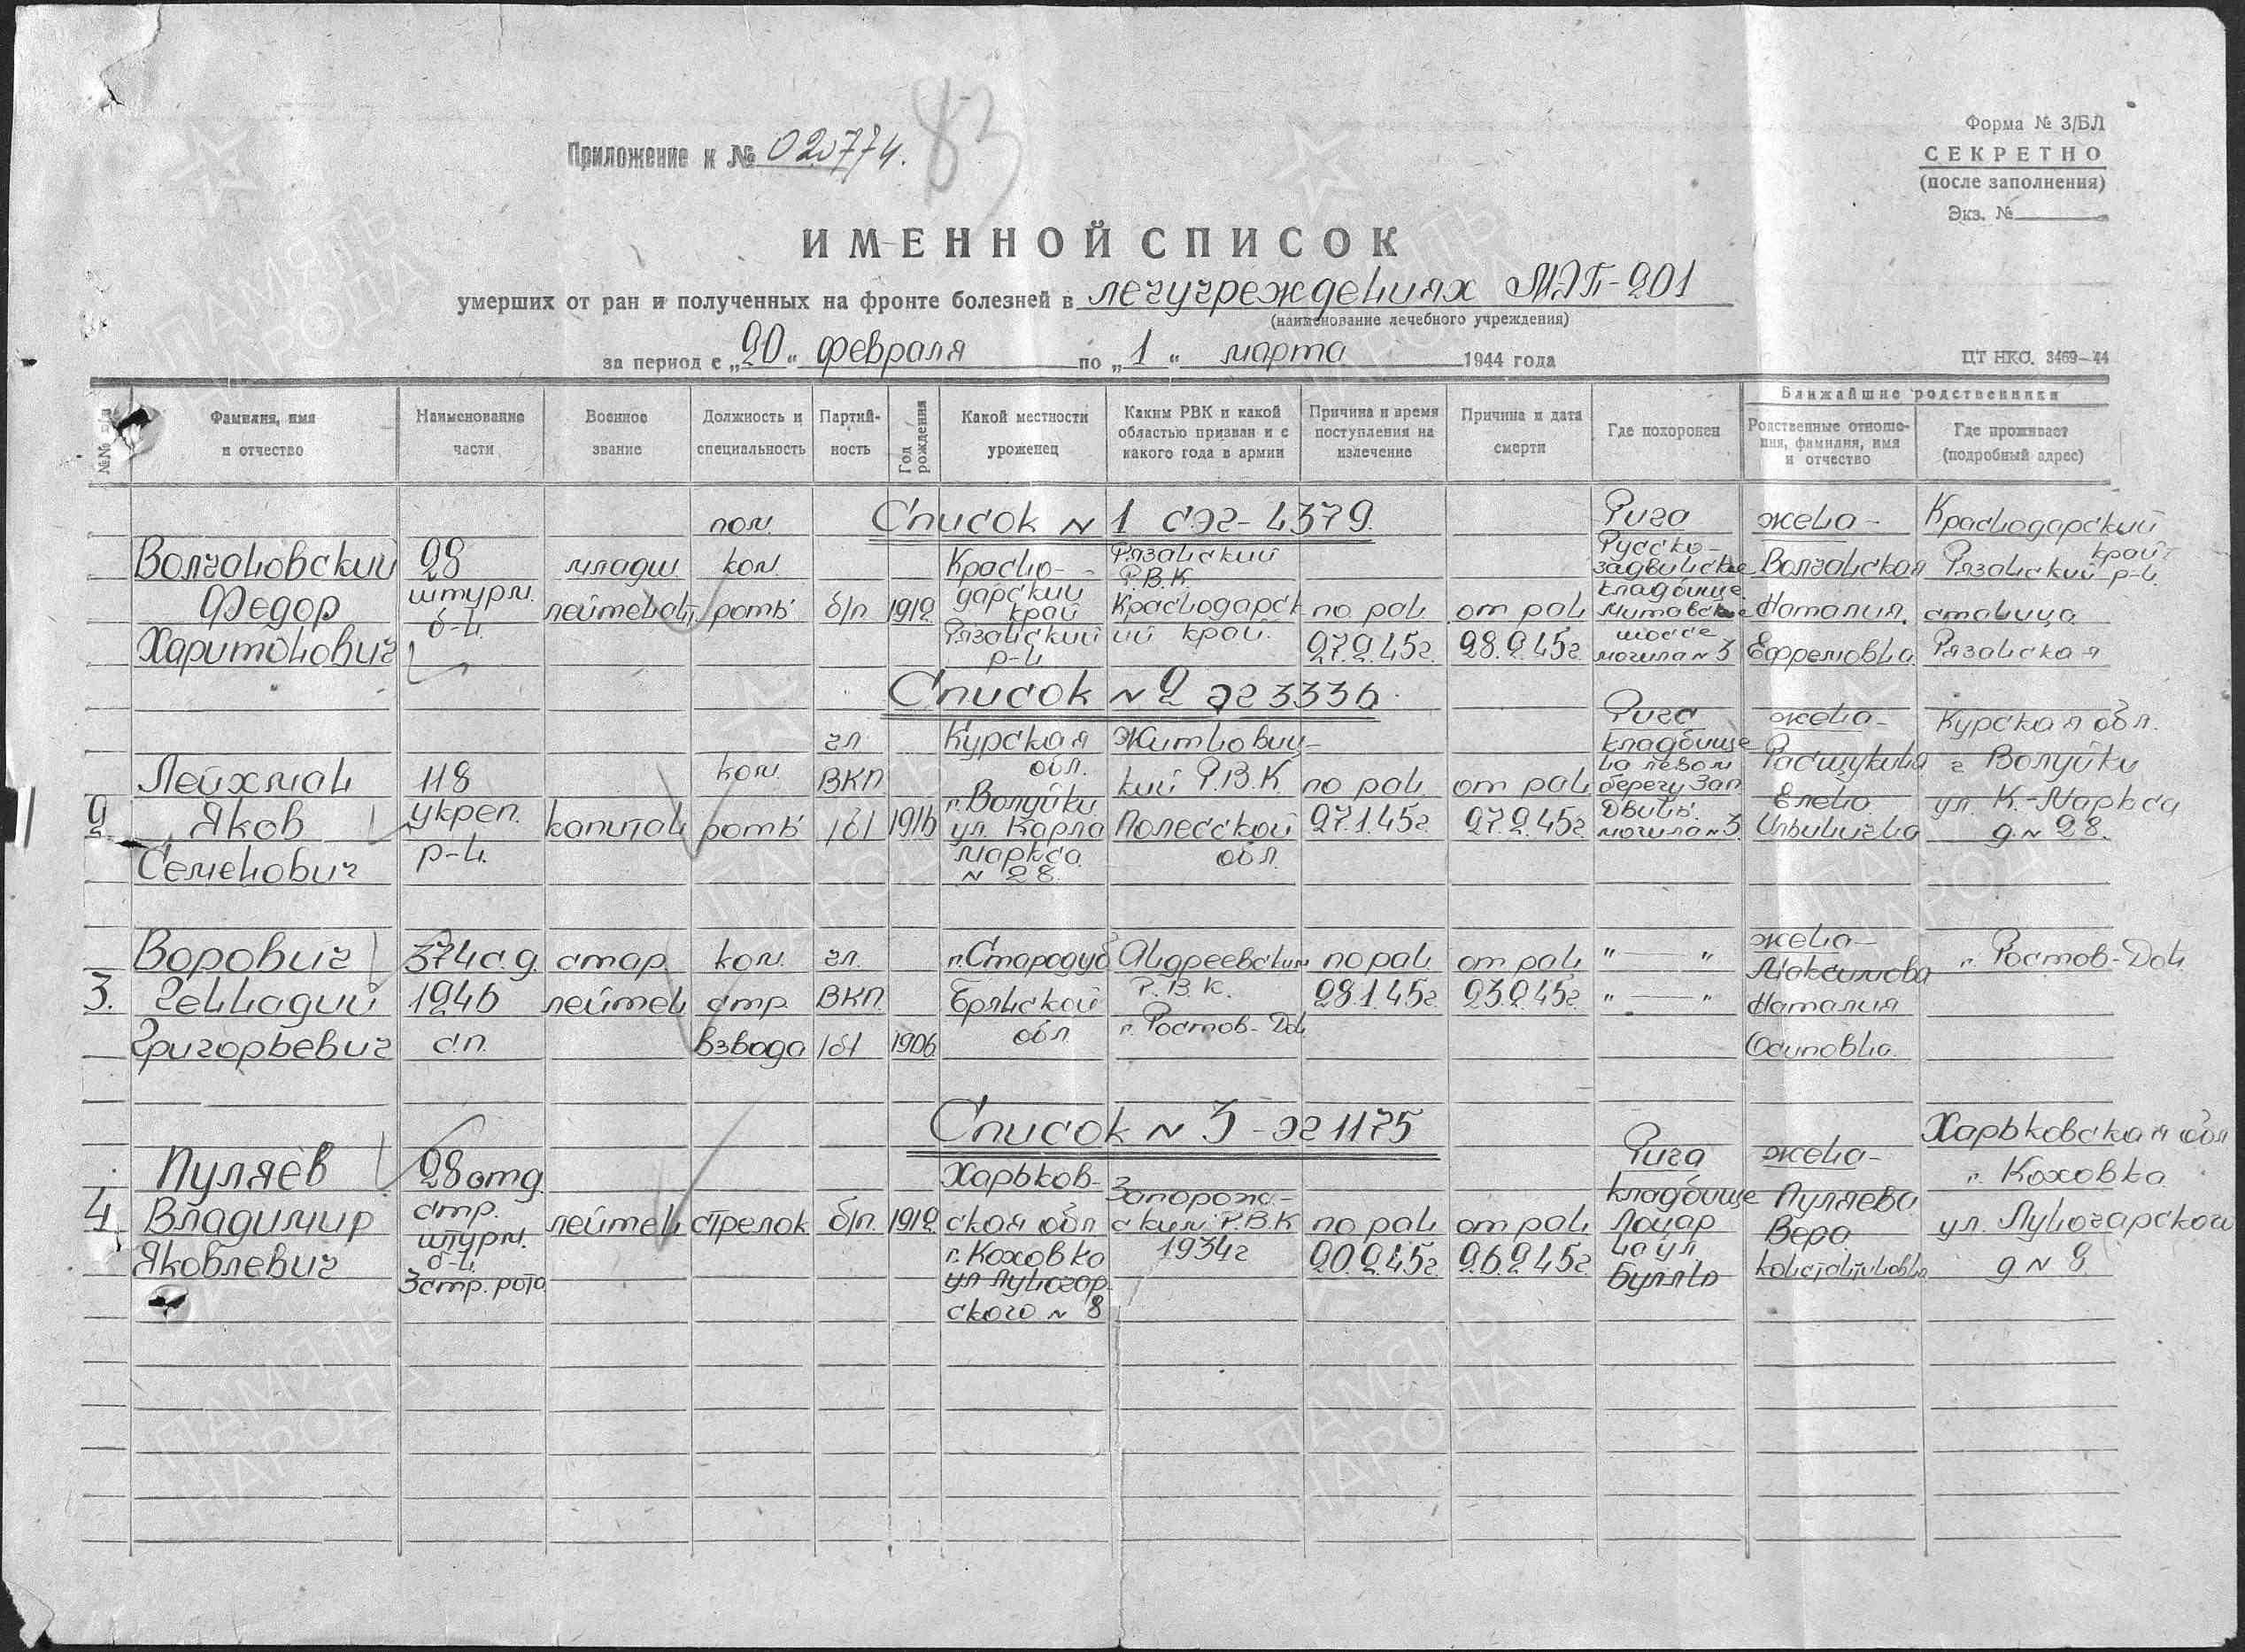 Приложение к № 020774.
83
Форма № 3/БЛ
СЕКРЕТНО
(после заполнения)
Экз. №
ИМЕННОЙ СПИСОК
умерших от ран и полученных на фронте болезней в лечучреждениях МЭП-201
(наименование лечебного учреждения)
за период с „20“ февраля по „1“ марта 1944 года
ЦТ НКО. 3469–44
№№ п/п
Фамилия, имя и отчество
Наименование части
Военное звание
Должность и специальность
Партий-ность
Год рождения
Какой местности уроженец
Каким РВК и какой областью призван и с какого года в армии
Причина и время поступления на излечение
Причина и дата смерти
Где похоронен
Ближайшие родственники
Родственные отноше-ния, фамилия, имя и отчество
Где проживает (подробный адрес)
Список N 1 СЭГ-4379
Волчановский Федор Харитонович
28 штурм. б-н.
младш лейтенант
пом. ком. роты
б/п
1912
Красно-дарский край Рязанский р-н
Рязанский Р.В.К. Краснодарск ий край.
по ран 27.2.45г.
от ран 28.2.45г
Рига Русско-задвинское кладбище. Митавское шоссе могила N 3
жена- Волчанская Наталия. Ефремовна
Краснодарский край Рязанский р-н. станица Рязанская
Список N 2 ЭГ 3336
2
Лейхман Яков Семенович
118 укреп. р-н.
капитан
ком. роты
чл ВКП /б/
1916
Курская обл. г. Волуйки ул. Карла Маркса N 28
Житкович-кий Р.В.К Полесской обл
по ран 27.1.45г
от ран 27.2.45г
Рига кладбище на левом берегу Зап Двины. могила N 3
жена- Елена Ильинична
Курская обл. г Волуйки ул. К.-Маркса д N 28.
3.
Ворович Геннадий Григорьевич
374 с.д. 1246 с.п.
стар лейтен
ком. стр. взвода
чл. ВКП /б/
1906
г. Стародуб Брянской обл
Андреевским Р.В.К. г. Ростов-Дон
по ран. 28.1.45г
от ран 23.2.45г
"——"
"——"
жена- Максимова Наталия Осиповна.
г. Ростов-Дон
Список N 3 - ЭГ 1175
4
Пуляев Владимир Яковлевич
28 отд. стр. штурм. б-н. 3 стр. рота
лейтен
стрелок
б/п.
1912
Харьков-ская обл г. Коховка ул Луначар-ского N 8
Запорож-ским Р.В.К 1934г
по ран 20.2.45г
от ран 26.2.45г
Рига кладбище на ул
жена- Пуляева Вера Константиновна
Харьковская обл г. Коховка ул. Луначарского д N 8
ПАМЯТЬ НАРОДА